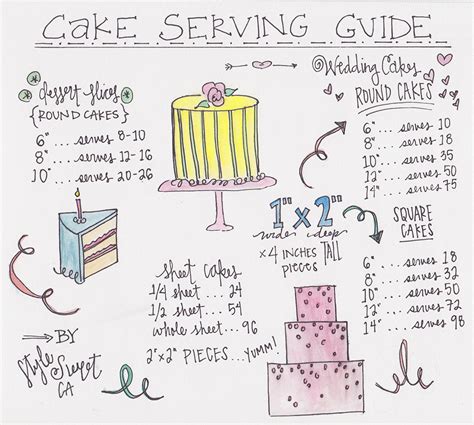 CAKE SERVING GUIDE
dessert slices
{ROUND CAKES}
6" ... serves 8-10
8" ... serves 12-16
10" ... serves 20-26
Wedding Cakes
ROUND CAKES
6" ... serves 10
8" ... serves 18
10" ... serves 35
12" ... serves 50
14" ... serves 75
1" x 2"
wide deep
x 4 INCHES TALL
pieces
SQUARE
CAKES
6" ... serves 18
8" ... serves 32
10" ... serves 50
12" ... serves 72
14" ... serves 98
sheet cakes
1/4 sheet ... 24
1/2 sheet ... 54
whole sheet ... 96
2"x2" PIECES ... yumm!
BY
Style Sweet
CA